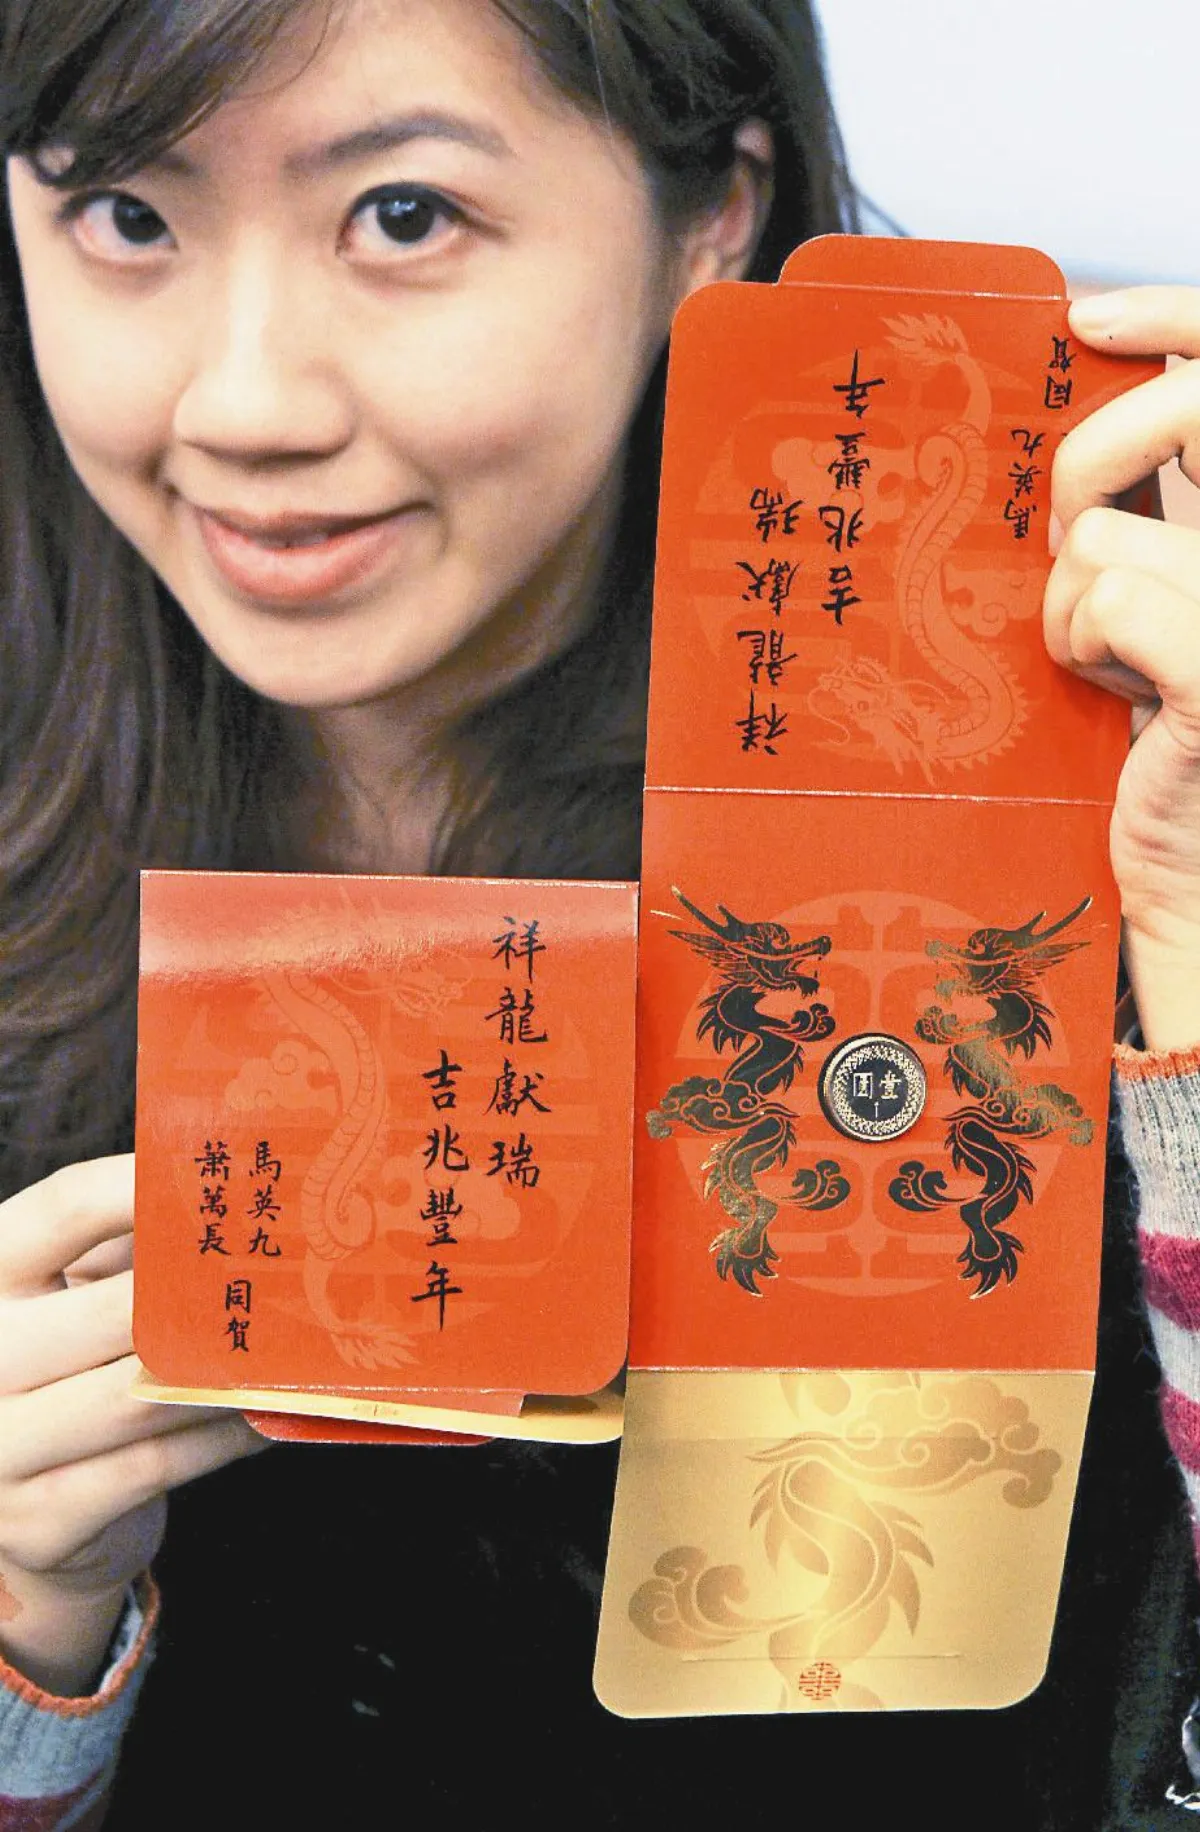 祥龍獻瑞
吉兆豐年
馬英九
蕭萬長
同賀
祥龍獻瑞
吉兆豐年
馬英九
同賀
壹圓